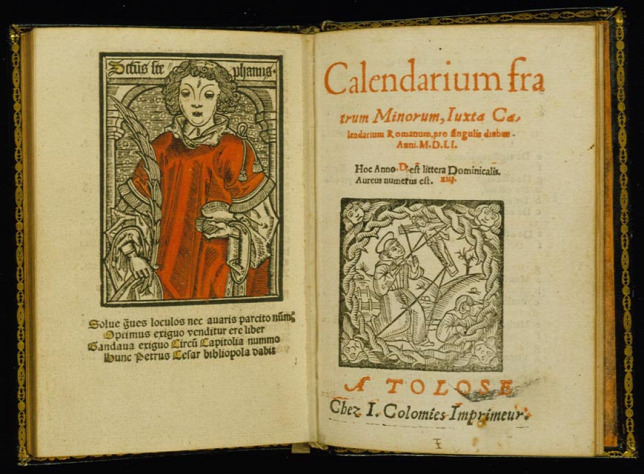 Sctūs ste phanus.
Solue q̄ues loculos nec avaris parcito nūm̄;
Optimus exiguo venditur ere liber
Gandaua exiguo Circū Capitolia nummo
Hunc Petrus Cesar bibliopola dabit
Calendarium fra
trum Minorum, Iuxta Ca,
lendarium Romanum, pro singulis diebus.
Anni. M.D.LI.
Hoc Anno. D. est littera Dominicalis.
Aureus numerus est. xiij.
A TOLOSE
Chez I. Colomies Imprimeur.